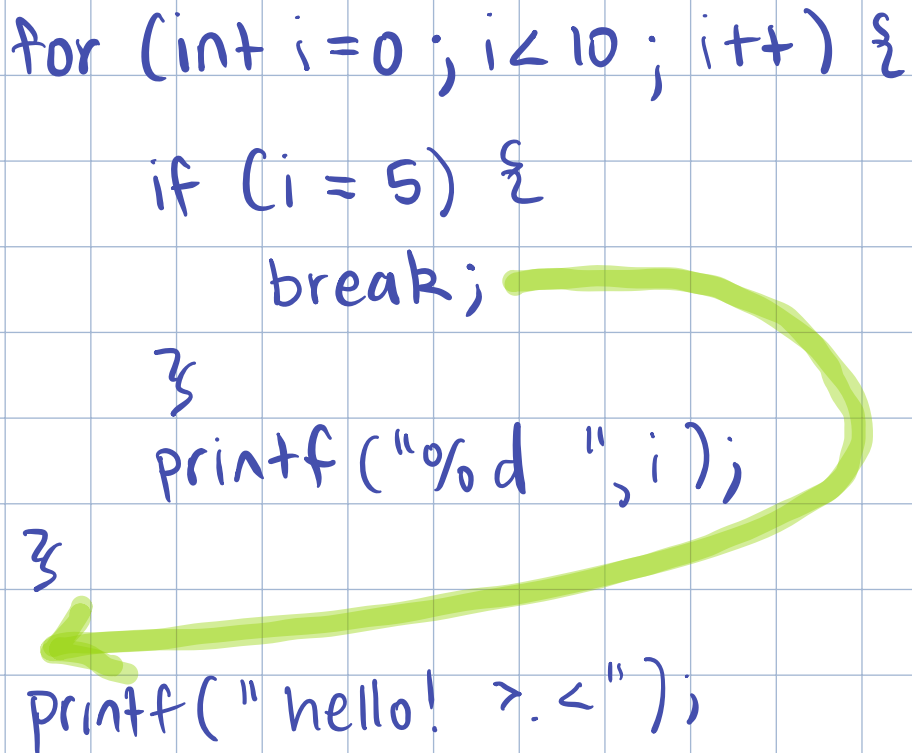 for (int i=0; i<10; i++) {
if (i = 5) {
break;
}
printf ("%d ", i);
}
printf("hello! >.<");